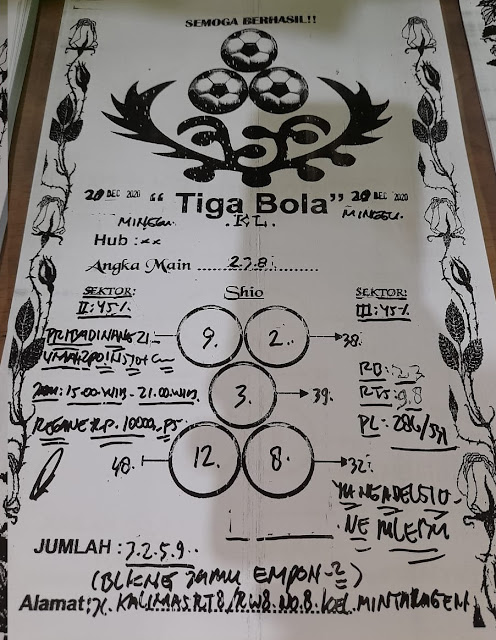 SEMOGA BERHASIL!!
20 DEC 2020 "Tiga Bola" 20 DEC 2020
MINGGU. .KL. MINGGU.
Hub : xx
Angka Main 2.7.8.
SEKTOR: Shio SEKTOR:
II: 45% III: 45%
9. 2. 38.
RB: 2.3
3. 39.
RTS: 9.8
JAM: 15.00 WIB - 21.00 WIB.
PL: 286/531
REGANE RP. 10000. PS
48. 12. 8. 32.
JUMLAH : 7.2.5.9.
(BLKNG JAMU EMPON-2)
Alamat: JL. KALIMAS RT 8/RW8. NO.8. KEL MINTARAGEN